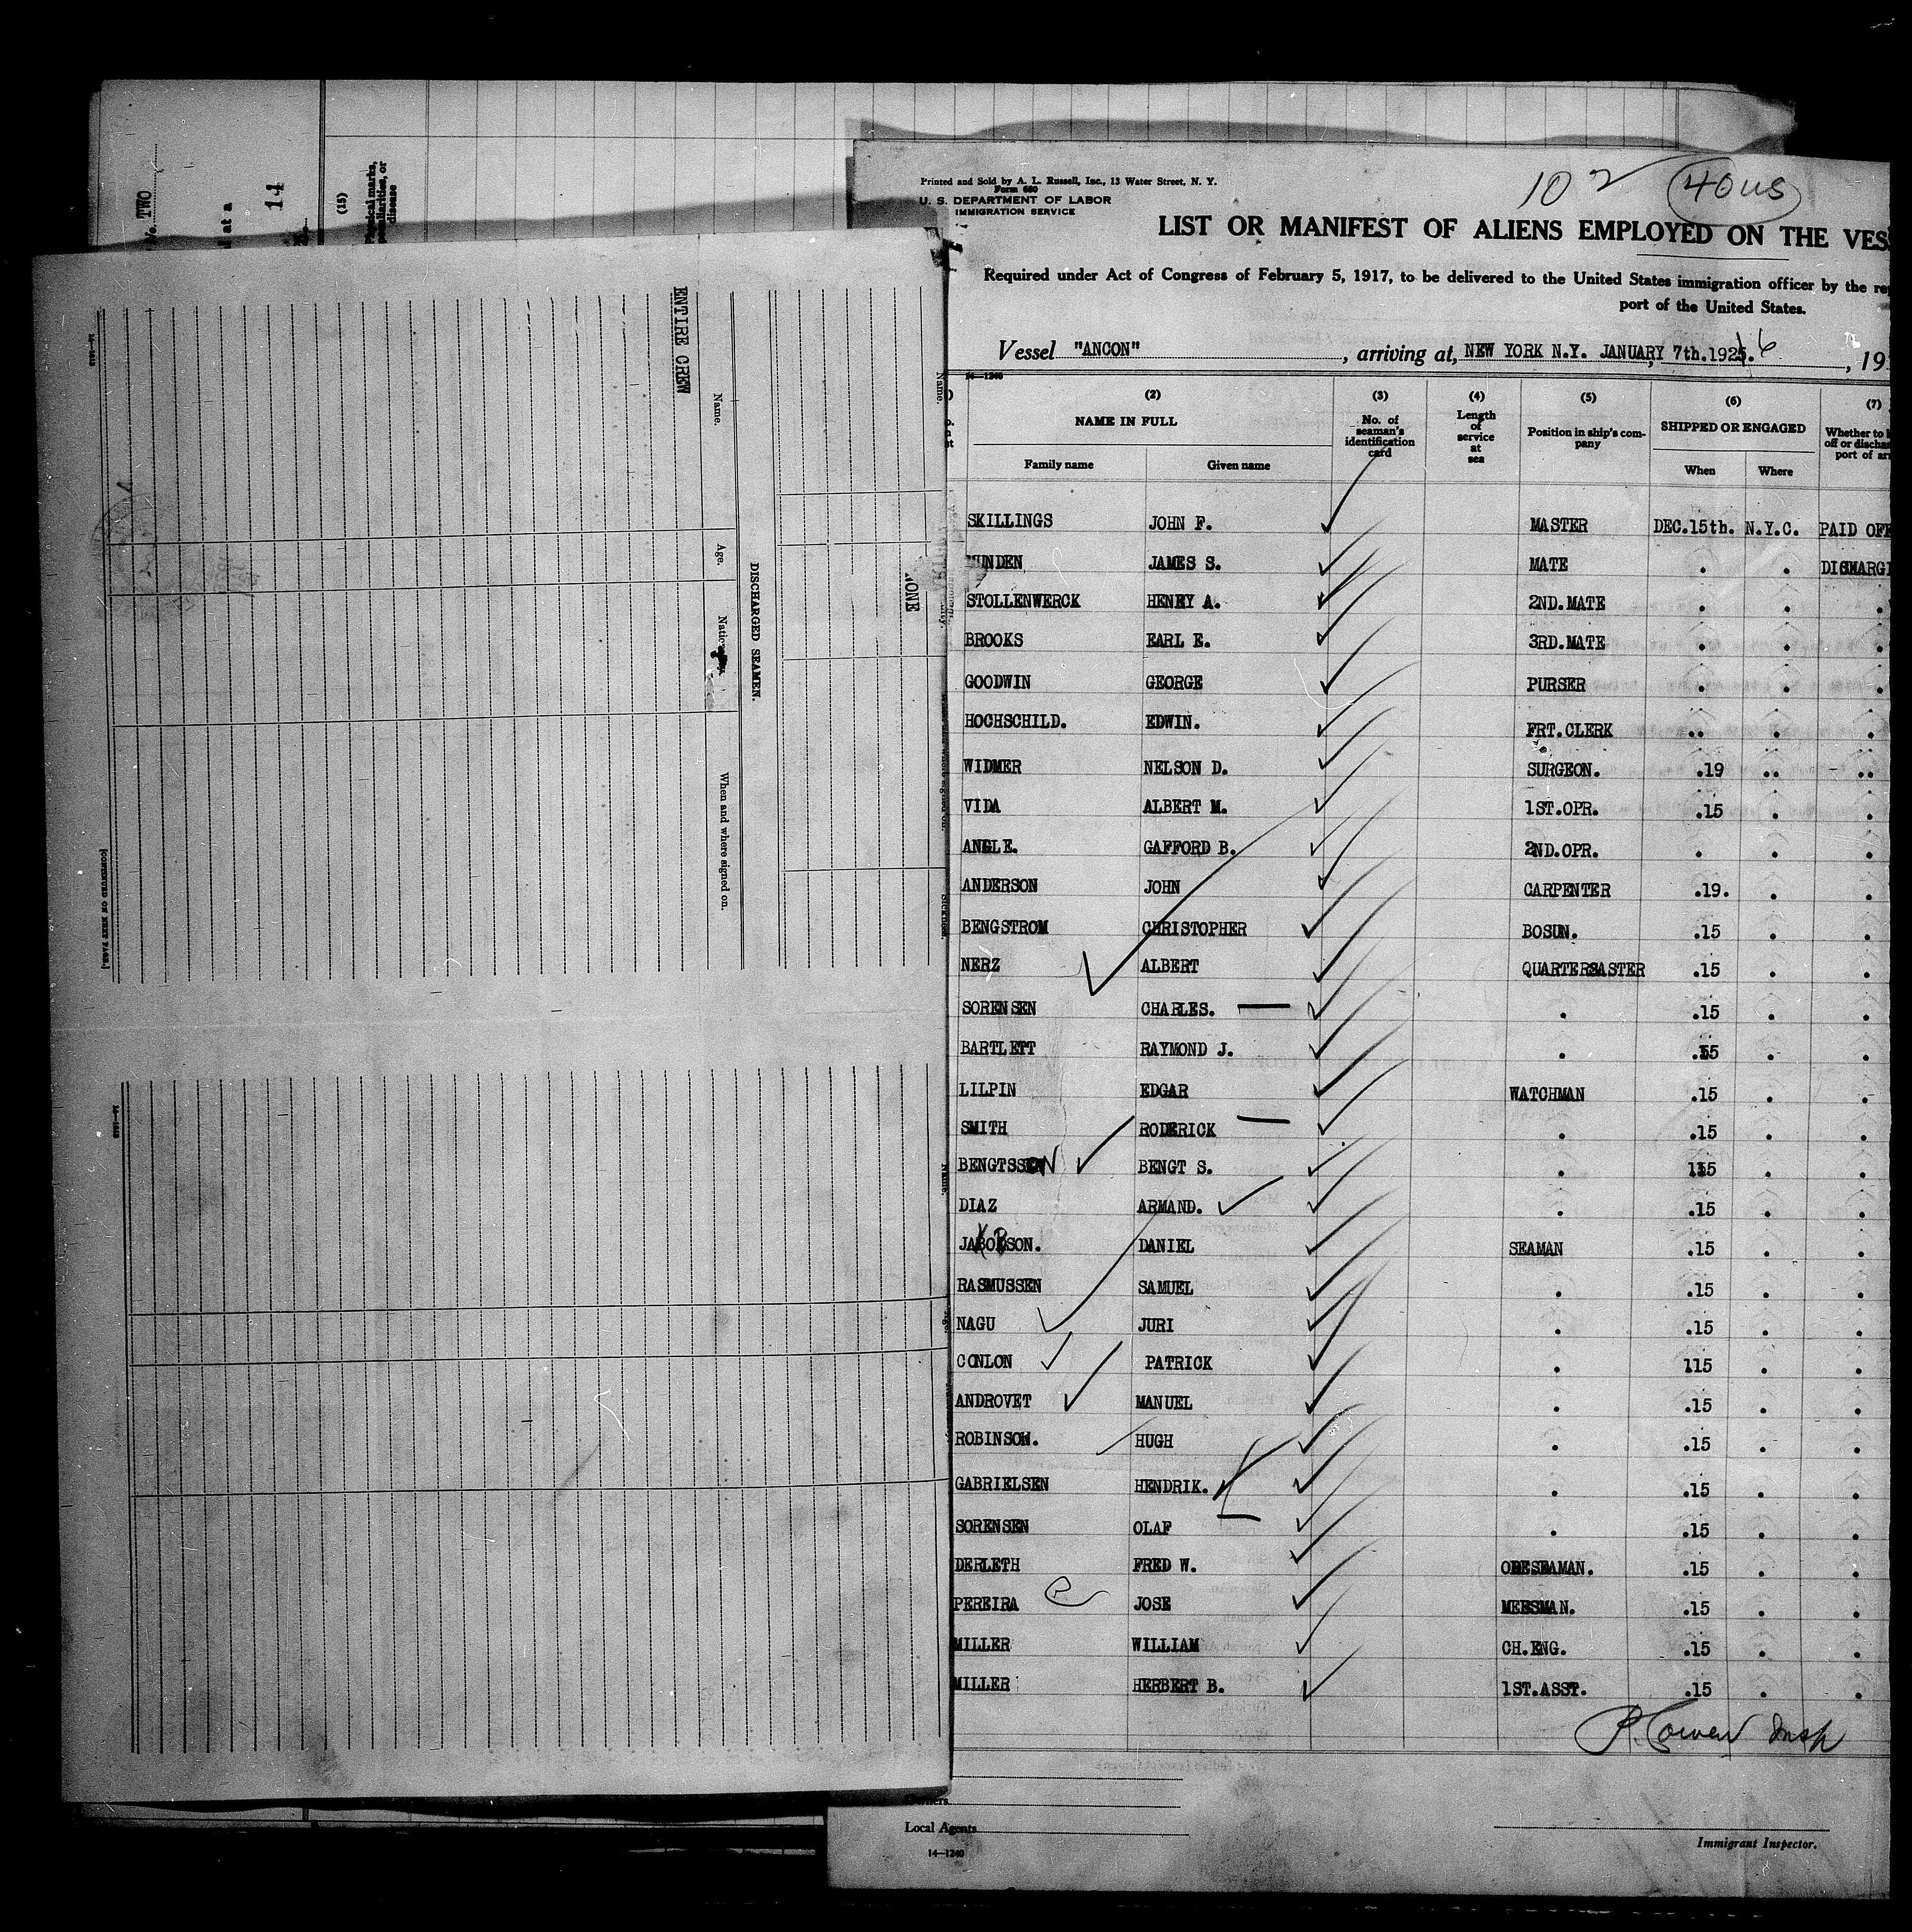 No. TWO
d at a
14
(15)
Physical marks,
peculiarities, or
disease
ENTIRE CREW
Name.
Age.
When and where signed on.
DISCHARGED SEAMEN.
[CONTINUED ON NEXT PAGE.]
NONE
Name.
Printed and Sold by A. L. Russell, Inc., 13 Water Street, N. Y.
Form 680
U. S. DEPARTMENT OF LABOR
IMMIGRATION SERVICE
10 2 40 us
LIST OR MANIFEST OF ALIENS EMPLOYED ON THE VES
Required under Act of Congress of February 5, 1917, to be delivered to the United States immigration officer by the re
port of the United States.
Vessel "ANCON", arriving at, NEW YORK N.Y. JANUARY 7th.1925. 16, 19
14—1240
(2) (3) (4) (5) (6) (7)
NAME IN FULL No. of seaman's identification card Length of service at sea Position in ship's company SHIPPED OR ENGAGED Whether to
off or discha
port of ar
Family name Given name When Where
SKILLINGS JOHN F. MASTER DEC.15th. N.Y.C. PAID OFF
UNDEN JAMES S. MATE . . DISHARG
STOLLENWERCK HENRY A. 2ND.MATE . . .
BROOKS EARL E. 3RD.MATE . . .
GOODWIN GEORGE PURSER . . .
HOCHSCHILD. EDWIN. FRT.CLERK .. . .
WIDMER NELSON D. SURGEON. .19 .. ..
VIDA ALBERT M. 1ST.OPR. .15 . .
ANGLE. GAFFORD B. 2ND.OPR. . . .
ANDERSON JOHN CARPENTER .19. . .
BENGSTROM CHRISTOPHER BOSUN. .15 . .
NERZ ALBERT QUARTERMASTER .15 . .
SORENSEN CHARLES. — . .15 . .
BARTLETT RAYMOND J. . .15 . .
LILPIN EDGAR WATCHMAN .15 . .
SMITH RODERICK — . .15 . .
BENGTSSON BENGT S. . 115 . .
DIAZ ARMAND. . .15 . .
JABOKSON. DANIEL SEAMAN .15 . .
RASMUSSEN SAMUEL . .15 . .
NAGU JURI . .15 . .
CONLON PATRICK . 115 . .
ANDROVET MANUEL . .15 . .
ROBINSON. HUGH . .15 . .
GABRIELSEN HENDRIK. . .15 . .
SORENSEN OLAF — . .15 . .
DERLETH FRED W. .15 . .
PEREIRA JOSE MESSMAN. .15 . .
MILLER WILLIAM CH.ENG. .15 . .
MILLER HERBERT B. 1ST.ASST. .15 . .
P. Cowen Insp
Owners
Local Agents
14—1240
Immigrant Inspector.